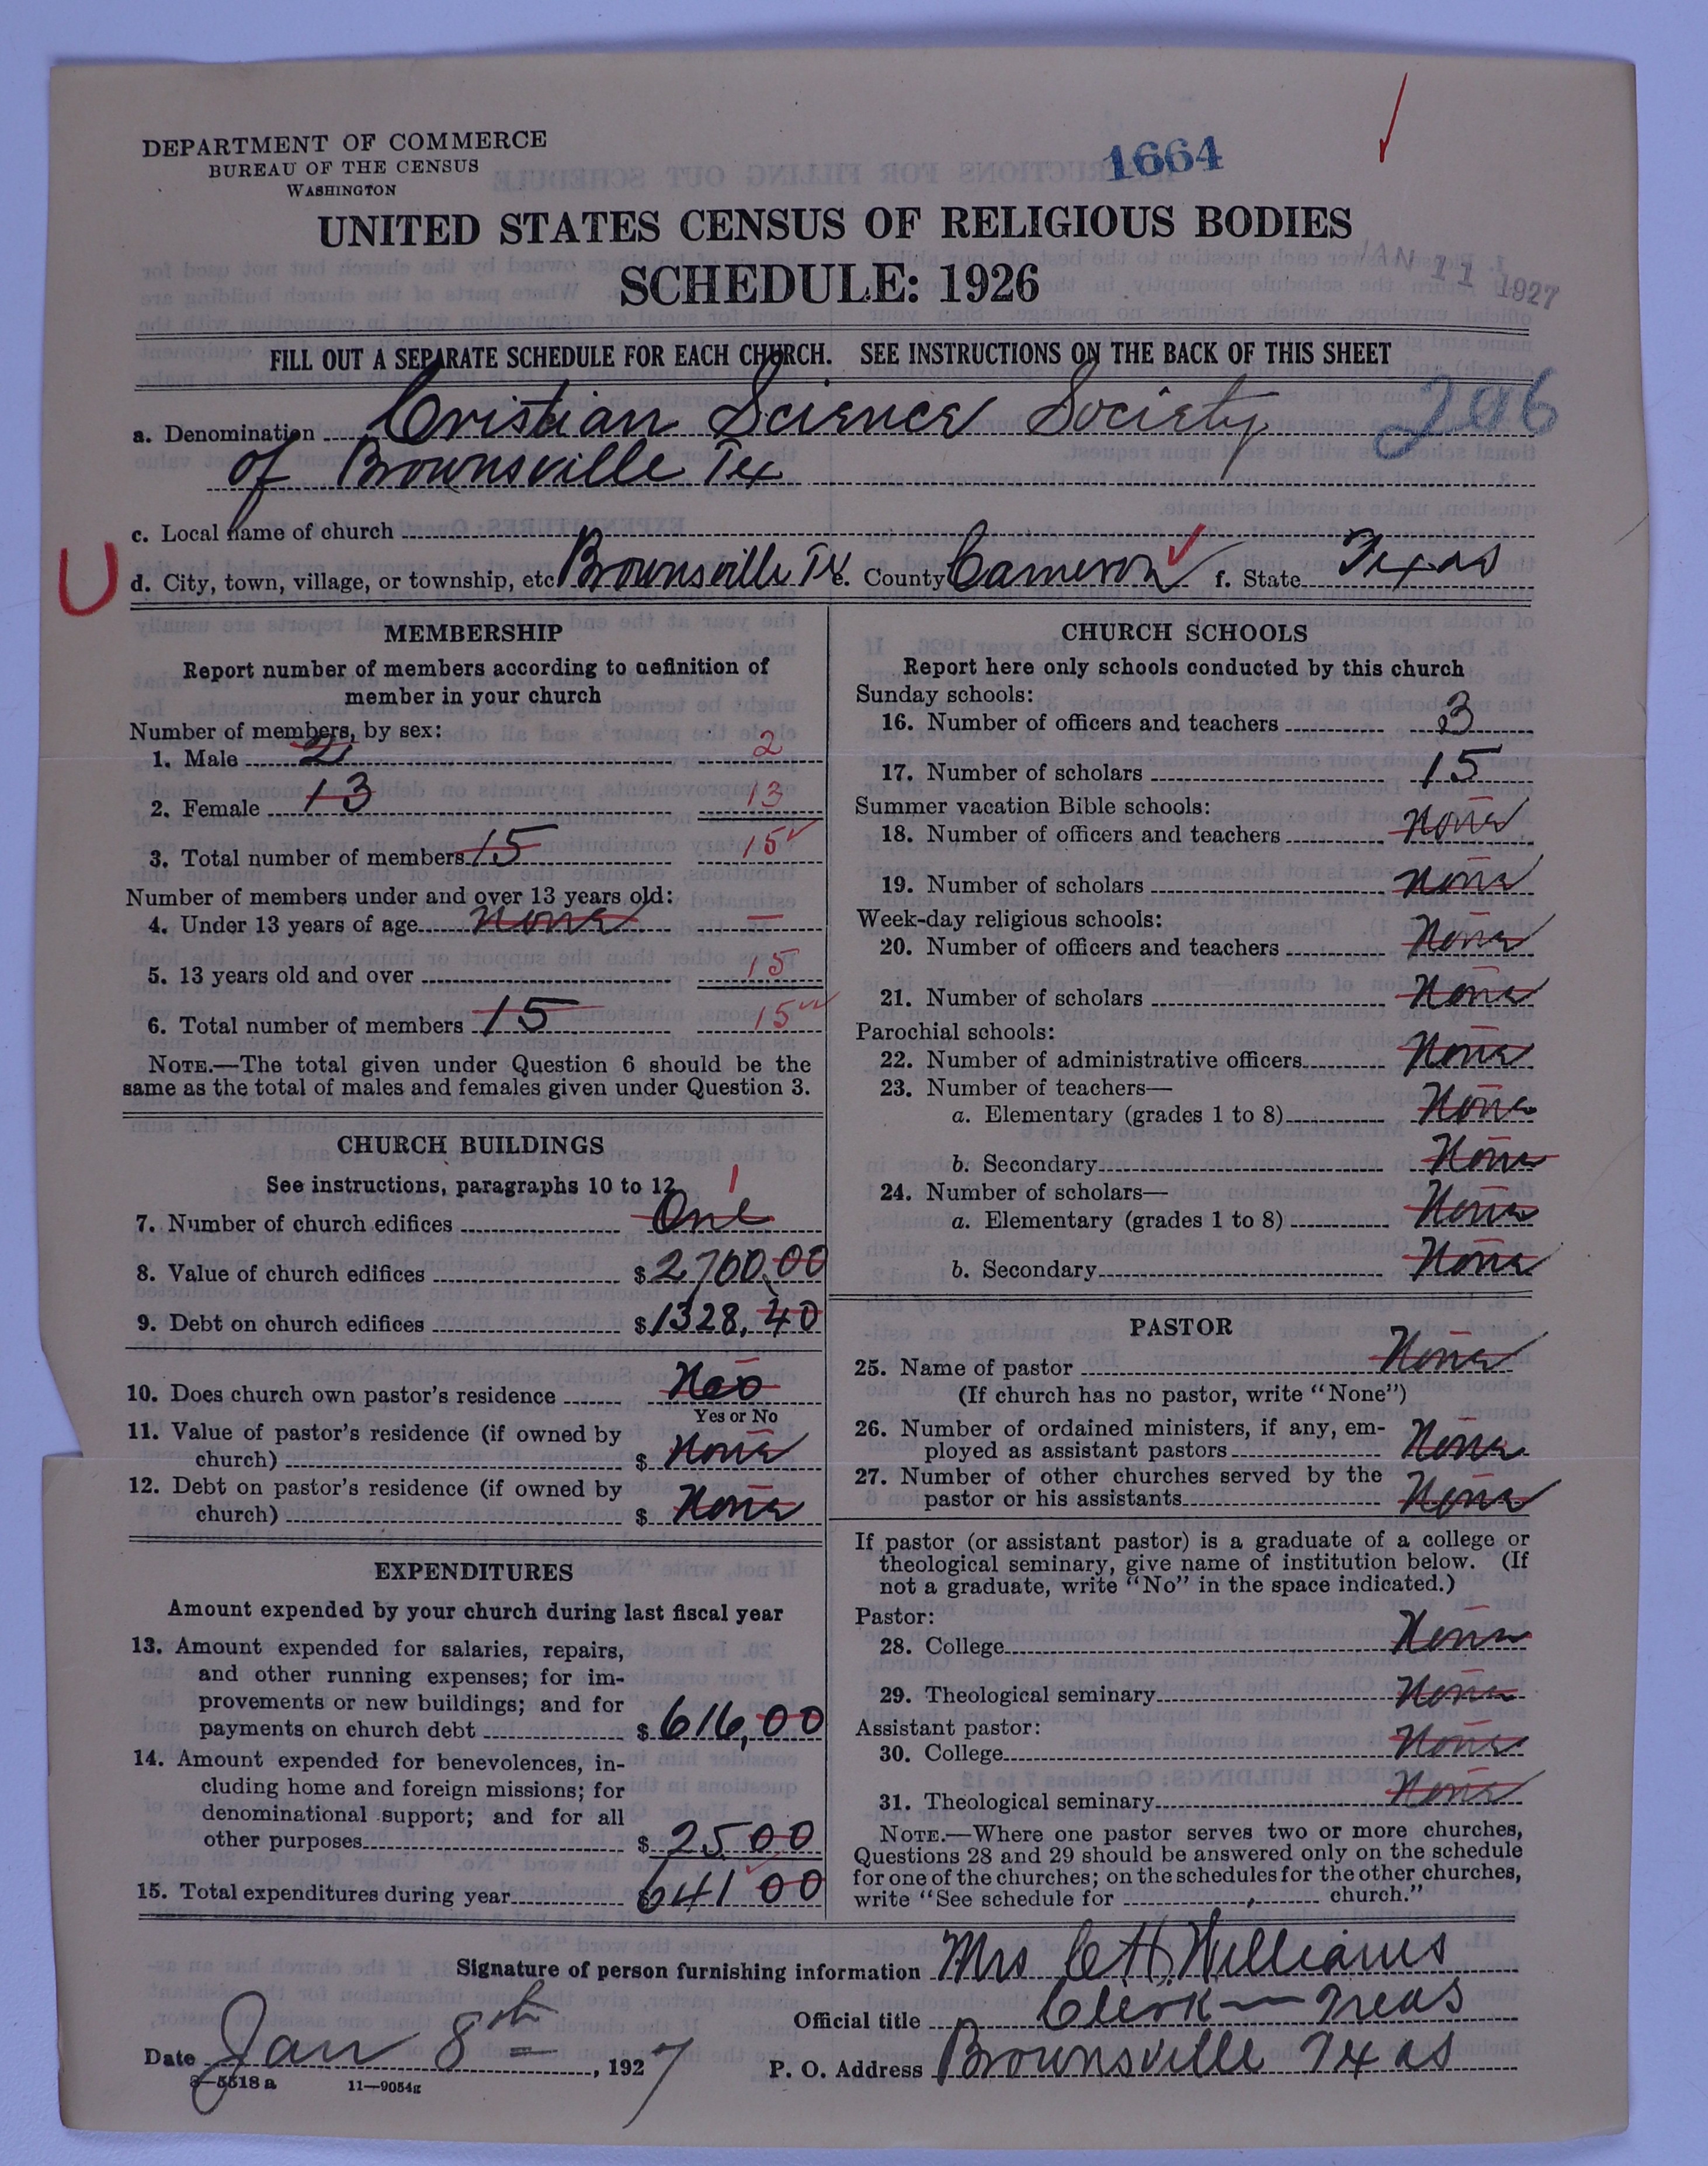 DEPARTMENT OF COMMERCE
BUREAU OF THE CENSUS
WASHINGTON
1664
UNITED STATES CENSUS OF RELIGIOUS BODIES
SCHEDULE: 1926
JAN 11 1927
FILL OUT A SEPARATE SCHEDULE FOR EACH CHURCH. SEE INSTRUCTIONS ON THE BACK OF THIS SHEET
a. Denomination Cristian Science Society
of Brownsville Tex
c. Local name of church
U
d. City, town, village, or township, etc Brownsville Tx e. County Cameron f. State Texas
MEMBERSHIP
Report number of members according to definition of
member in your church
Number of members, by sex:
1. Male 2 2
2. Female 13 13
3. Total number of members 15 15
Number of members under and over 13 years old:
4. Under 13 years of age None —
5. 13 years old and over 15
6. Total number of members 15 15
NOTE.—The total given under Question 6 should be the
same as the total of males and females given under Question 3.
CHURCH BUILDINGS
See instructions, paragraphs 10 to 12
1
7. Number of church edifices One
8. Value of church edifices $2700.00
9. Debt on church edifices $1328.40
10. Does church own pastor's residence No
Yes or No
11. Value of pastor's residence (if owned by
church) $ None
12. Debt on pastor's residence (if owned by
church) $ None
EXPENDITURES
Amount expended by your church during last fiscal year
13. Amount expended for salaries, repairs,
and other running expenses; for im-
provements or new buildings; and for
payments on church debt $616,00
14. Amount expended for benevolences, in-
cluding home and foreign missions; for
denominational support; and for all
other purposes $ 25 00
15. Total expenditures during year $641 00
CHURCH SCHOOLS
Report here only schools conducted by this church
Sunday schools:
16. Number of officers and teachers 3
17. Number of scholars 15
Summer vacation Bible schools:
18. Number of officers and teachers None
19. Number of scholars None
Week-day religious schools:
20. Number of officers and teachers None
21. Number of scholars None
Parochial schools:
22. Number of administrative officers None
23. Number of teachers—
a. Elementary (grades 1 to 8) None
b. Secondary None
24. Number of scholars—
a. Elementary (grades 1 to 8) None
b. Secondary None
PASTOR
25. Name of pastor None
(If church has no pastor, write "None")
26. Number of ordained ministers, if any, em-
ployed as assistant pastors None
27. Number of other churches served by the
pastor or his assistants None
If pastor (or assistant pastor) is a graduate of a college or
theological seminary, give name of institution below. (If
not a graduate, write "No" in the space indicated.)
Pastor:
28. College None
29. Theological seminary None
Assistant pastor:
30. College None
31. Theological seminary None
NOTE.—Where one pastor serves two or more churches,
Questions 28 and 29 should be answered only on the schedule
for one of the churches; on the schedules for the other churches,
write "See schedule for , church."
Signature of person furnishing information Mrs C H Williams
Official title Clerk — Treas
Date Jan 8th, 1927 P. O. Address Brownsville Texas
8—5518 a 11—9054g